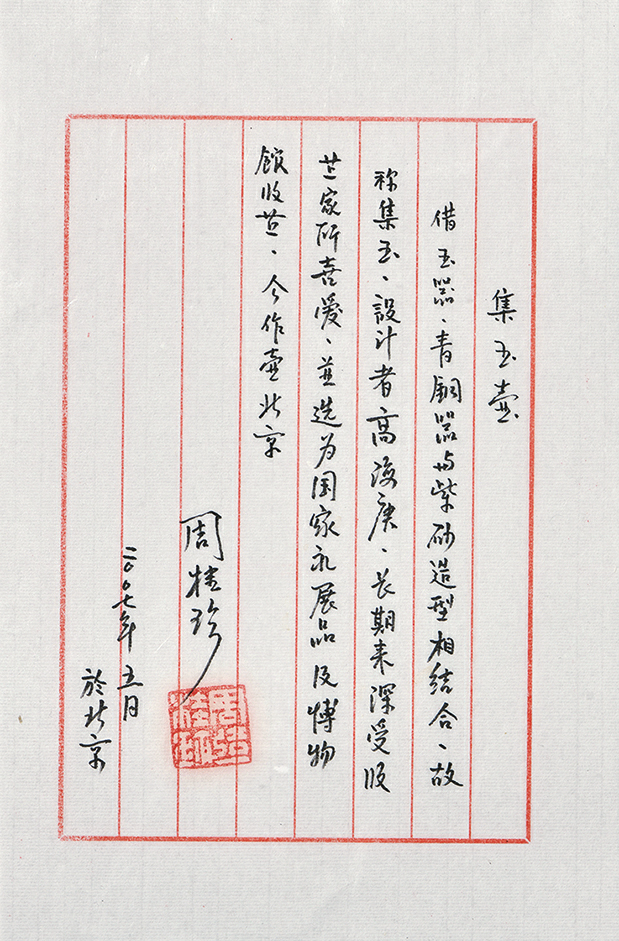 集玉壶
借玉器、青铜器与紫砂造型相结合、故
称集玉、設计者高海庚、长期来深受收
藏家所喜爱、並选为国家礼展品及博物
馆收藏、今作壶北京
周桂珍
二〇〇七年五月
於北京